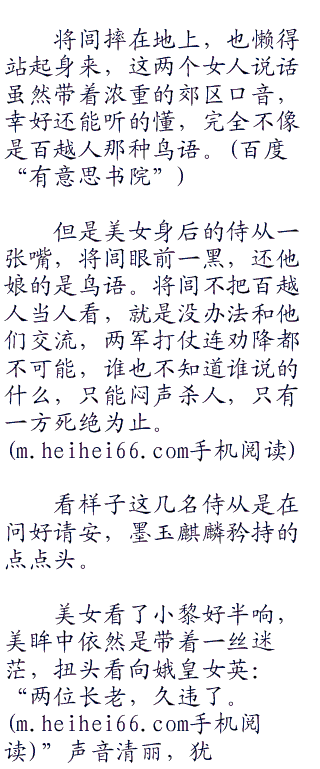 将闾摔在地上，也懒得
站起身来，这两个女人说话
虽然带着浓重的郊区口音，
幸好还能听的懂，完全不像
是百越人那种鸟语。(百度
“有意思书院”)
但是美女身后的侍从一
张嘴，将闾眼前一黑，还他
娘的是鸟语。将闾不把百越
人当人看，就是没办法和他
们交流，两军打仗连劝降都
不可能，谁也不知道谁说的
什么，只能闷声杀人，只有
一方死绝为止。
(m.heihei66.com手机阅读)
看样子这几名侍从是在
问好请安，墨玉麒麟矜持的
点点头。
美女看了小黎好半响，
美眸中依然是带着一丝迷
茫，扭头看向娥皇女英：
“两位长老，久违了。
(m.heihei66.com手机阅
读)”声音清丽，犹